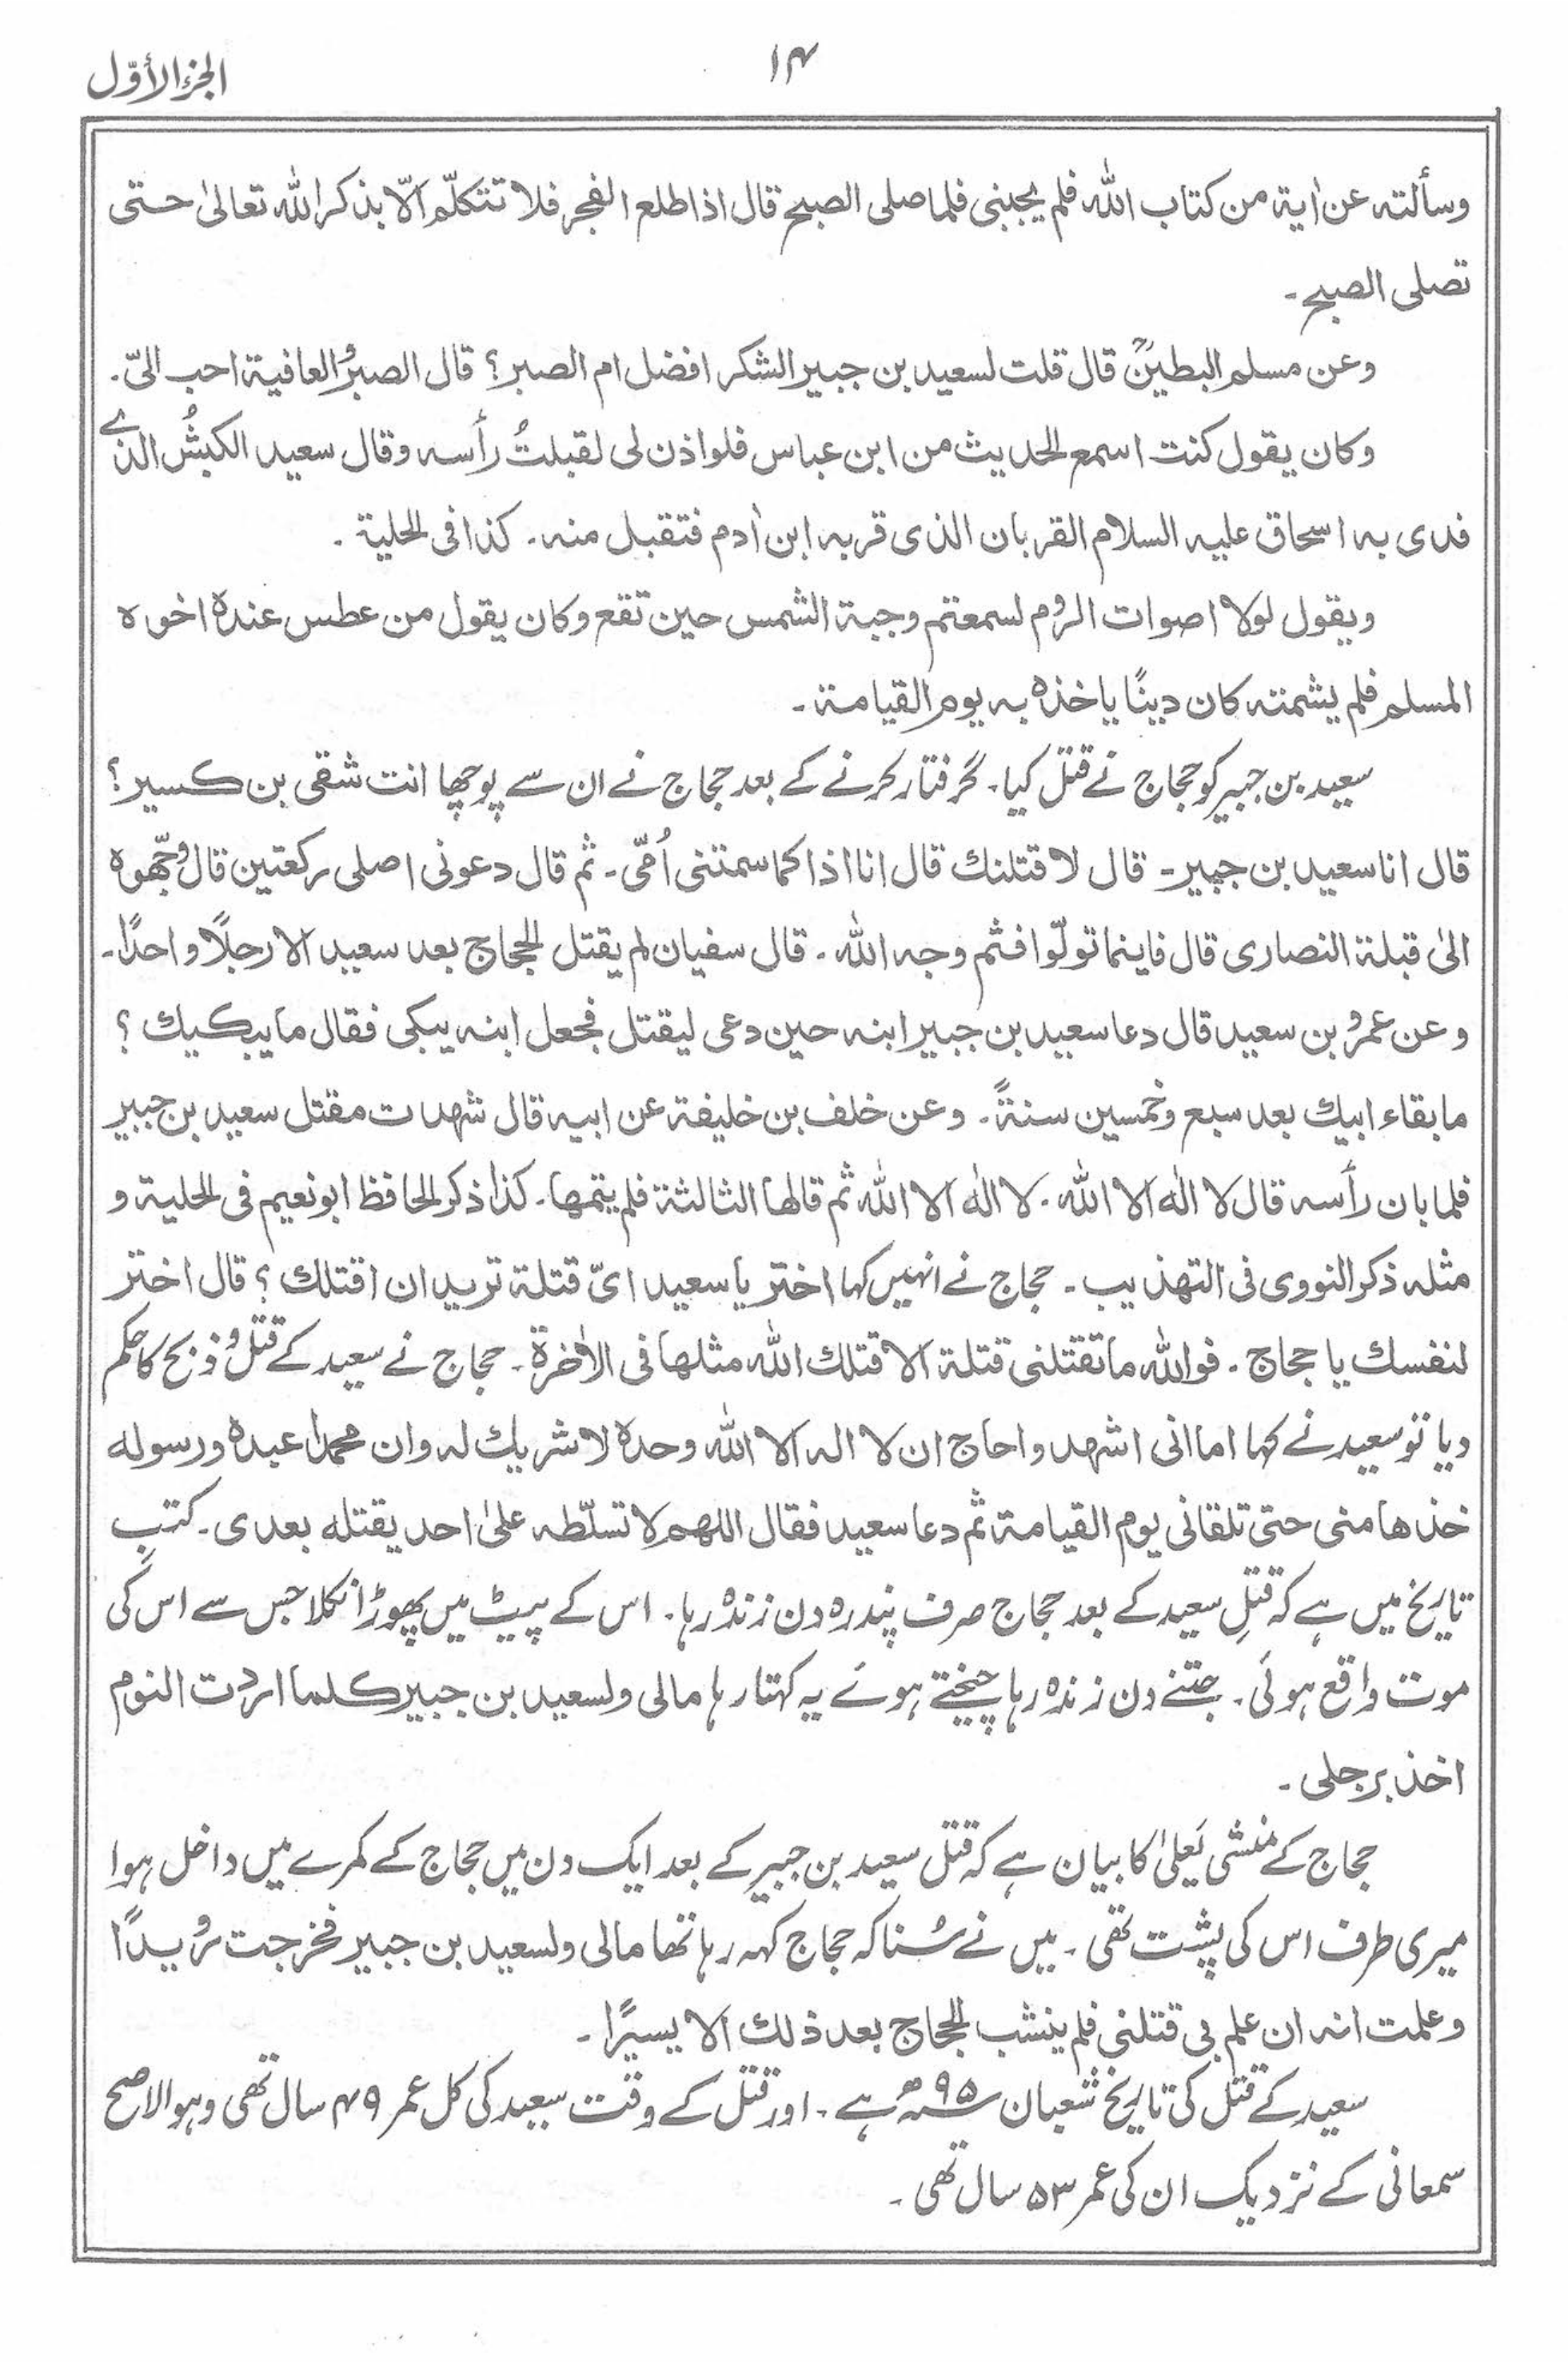 الجزء الأوّل
۱۴
وسألته عن اٰية من كتاب الله فلم يجبنى فلما صلى الصبح قال اذا طلع الفجر فلا تتكلّم الّا بذكر الله تعالىٰ حتى
تصلى الصبح۔
وعن مسلم البطينؒ قال قلت لسعيد بن جبير الشكر افضل ام الصبر؟ قال الصبرُ والعافية احب الىّ۔
وكان يقول كنت اسمع الحديث من ابن عباس فلو اذن لى لقبلتُ رأسه وقال سعيد الكبشُ الذى
فدى به اسحاق عليه السلام القربان الذى قربه ابن اٰدم فتقبل منه۔ كذا فى الحلية۔
ويقول لولا اصوات الروم لسمعتم وجبة الشمس حين تقع وكان يقول من عطس عنده اخوه
المسلم فلم يشمته كان دينًا ياخذه به يوم القيامة۔
سعید بن جبیر کو حجاج نے قتل کیا۔ گرفتار کرنے کے بعد حجاج نے ان سے پوچھا انت شقى بن كسير؟
قال انا سعيد بن جبير۔ قال لاقتلنك قال انا اذا كما سمتنى اُمّى۔ ثم قال دعونى اصلى ركعتين قال وجّهوه
الىٰ قبلة النصارى قال فاينما تولّوا فثم وجه الله۔ قال سفيان لم يقتل الحجاج بعد سعيد الا رجلًا واحدًا۔
وعن عمرو بن سعيد قال دعا سعيد بن جبير ابنه حين دعى ليقتل فجعل ابنه يبكى فقال ما يبكيك؟
ما بقاء ابيك بعد سبع وخمسين سنةً۔ وعن خلف بن خليفة عن ابيه قال شهدت مقتل سعيد بن جبير
فلما بان رأسه قال لا الٰه الا الله۔ لا الٰه الا الله ثم قالها الثالثة فلم يتمها۔ كذا ذكر الحافظ ابو نعيم فى الحلية و
مثله ذكر النووى فى التهذيب۔ حجاج نے انہیں کہا اختر يا سعيد اىّ قتلة تريد ان اقتلك؟ قال اختر
لنفسك يا حجاج۔ فوالله ما تقتلنى قتلة الا قتلك الله مثلها فى الاٰخرة۔ حجاج نے سعید کے قتل و ذبح کا حکم
دیا تو سعید نے کہا اما انى اشهد واحاج ان لا اله الا الله وحده لا شريك له وان محمدا عبده ورسوله
خذها منى حتى تلقانى يوم القيامة ثم دعا سعيد فقال اللهم لا تسلّطه علىٰ احد يقتله بعدى۔ کتبِ
تاریخ میں ہے کہ قتلِ سعید کے بعد حجاج صرف پندرہ دن زندہ رہا۔ اس کے پیٹ میں پھوڑا نکلا جس سے اس کی
موت واقع ہوئی۔ جتنے دن زندہ رہا چیختے ہوئے یہ کہتا رہا مالى ولسعيد بن جبير كلما اردت النوم
اخذ برجلى۔
حجاج کے منشی یَعلیٰ کا بیان ہے کہ قتل سعید بن جبیر کے بعد ایک دن میں حجاج کے کمرے میں داخل ہوا
میری طرف اس کی پشت تھی۔ میں نے سُنا کہ حجاج کہہ رہا تھا مالى ولسعيد بن جبير فخرجت رُويدًا
وعلمت انه ان علم بى قتلنى فلم ينشب الحجاج بعد ذلك الا يسيرًا۔
سعید کے قتل کی تاریخ شعبان ۹۵ھ ہے۔ اور قتل کے وقت سعید کی کل عمر ۴۹ سال تھی وہو الاصح
سمعانی کے نزدیک ان کی عمر ۵۳ سال تھی۔